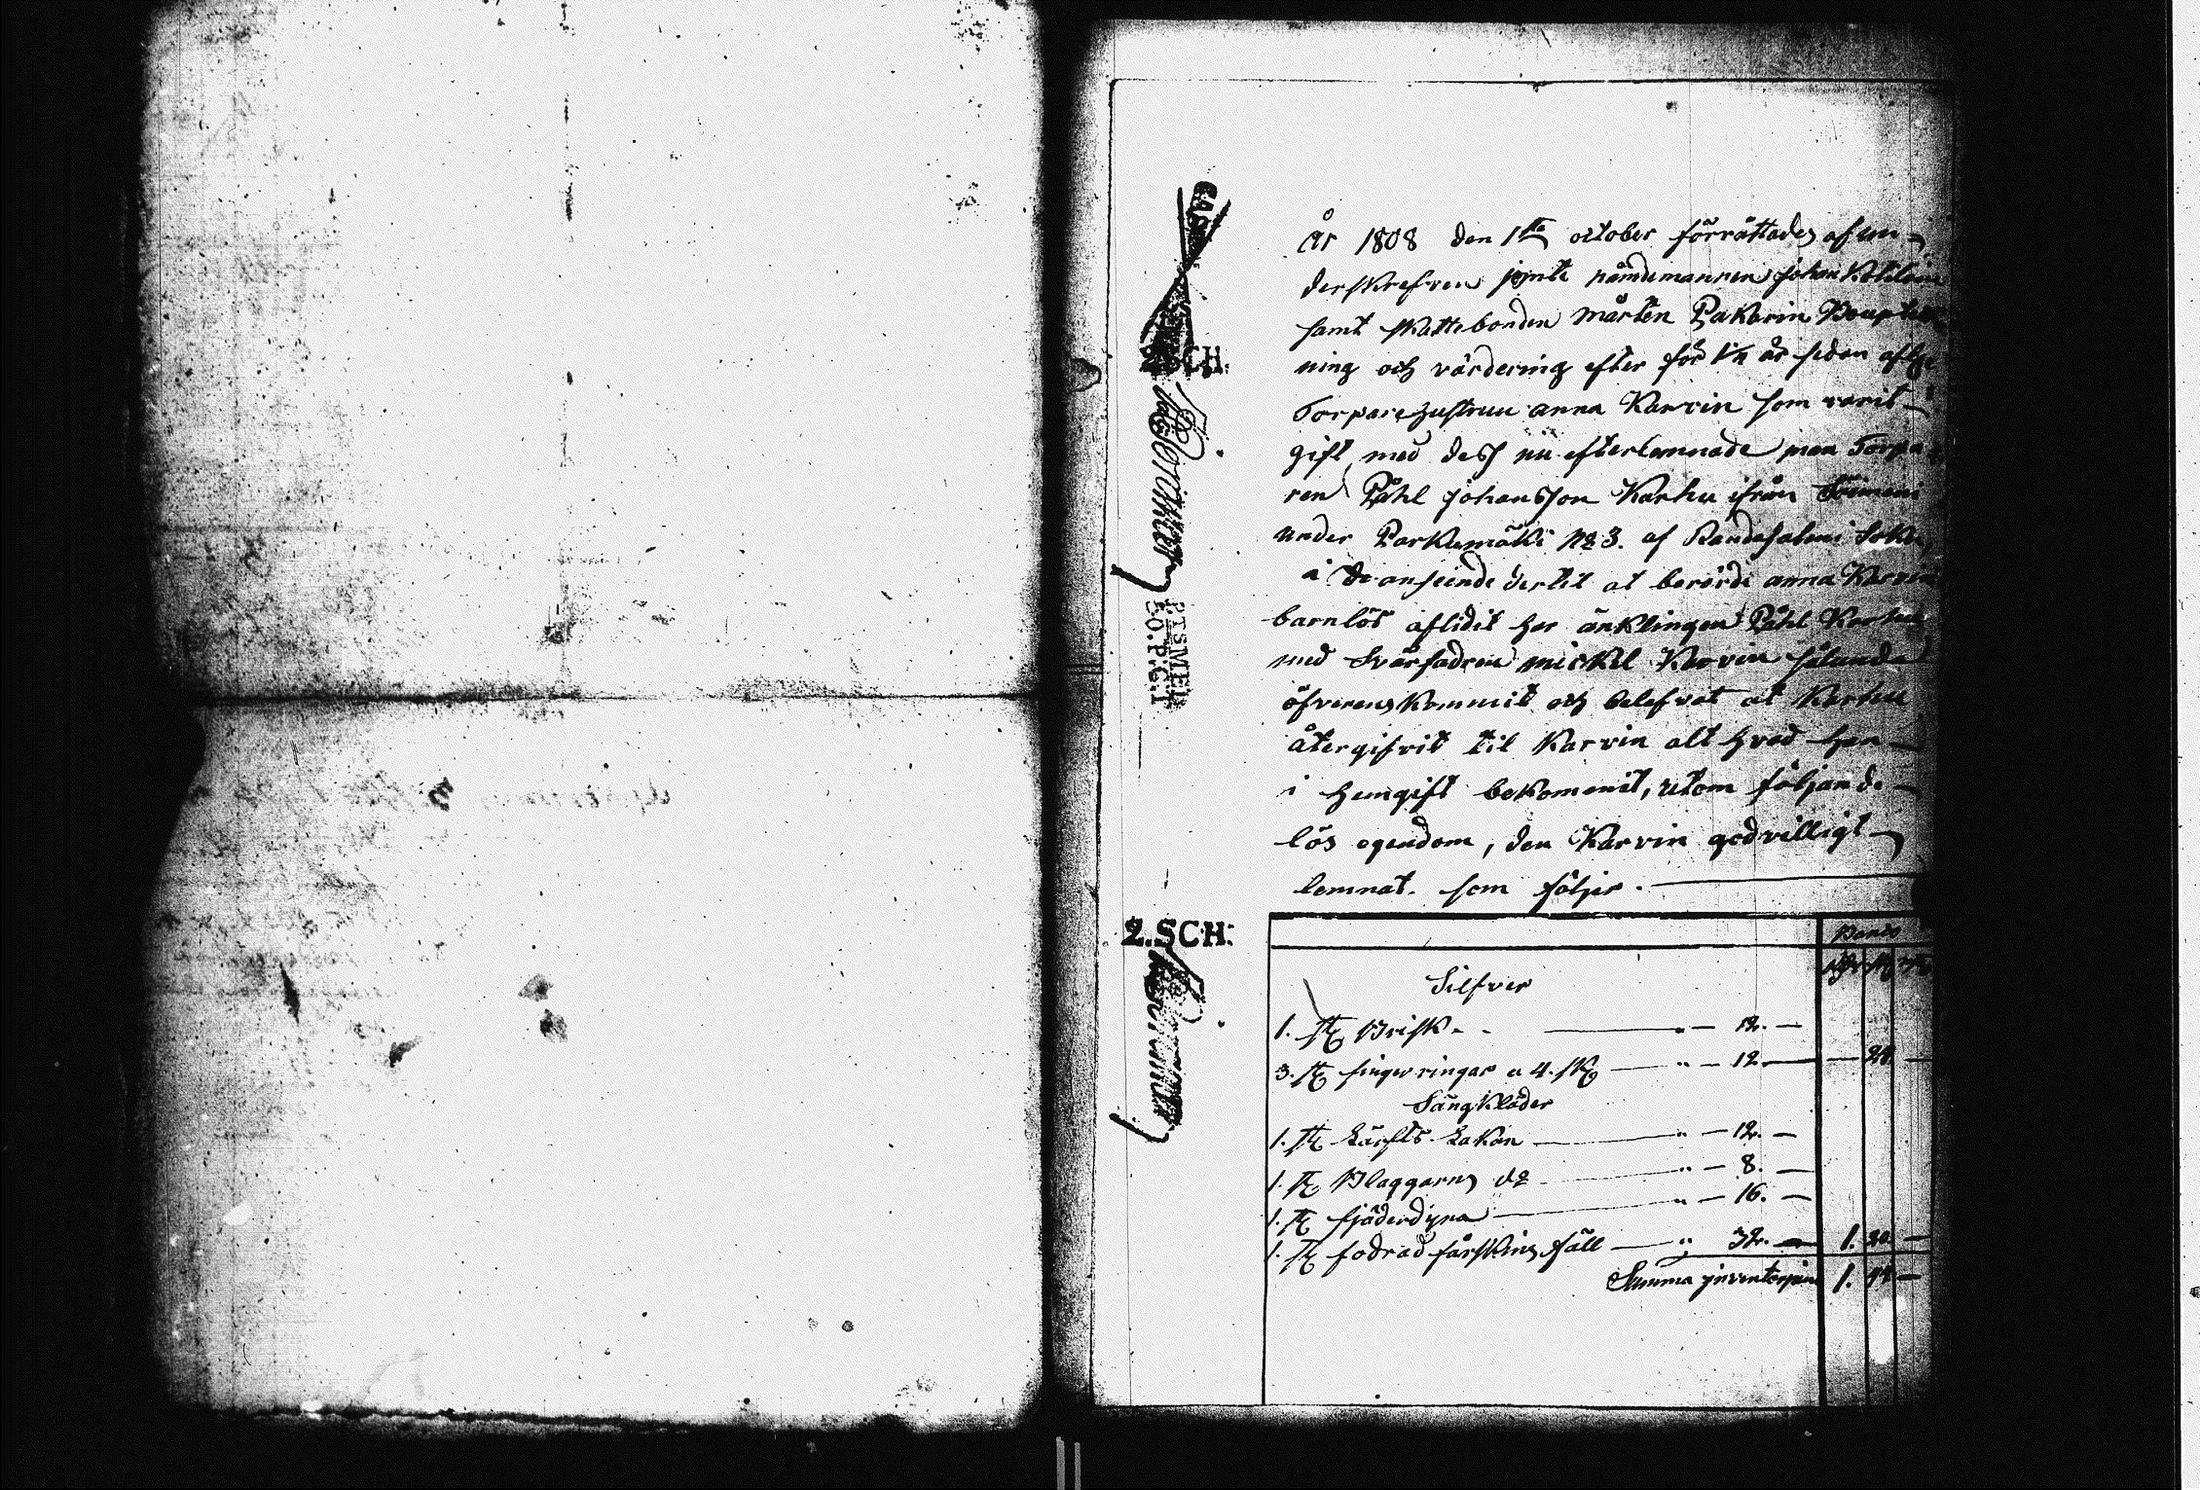 År 1808 den 1ste october förrättades af un-
derskrefven jemte nämdemannen Johan
samt skattebonden Mårten Pakarin Boupteck
ning och värdering efter för 1½ år sedan aflge
Torparehustrun anna Karvin som varit
gift med dess nu efterlemnade man Torpa
ren Påhl Johansson Karhu ifrån
under Parkumäki No 3. af Randasalmi Sokn,
i anseende dertil at berörde anna Karvin
barnlös aflidit har änklingen Påhl Karhu
med Svärfadren Mickel Karvin sålunda
öfverenskommit och belefvat at Karhu
återgifvit til Karvin alt hvad han
i hemgift bekommit, utom följande
lös egendom, den Karvin godvilligt
lemnat. som följer.
2.SCH.
Banco
Silfver
1. st Brisk - - " - 12. -
3. st fingerringar a 4. sk " - 12 - - 24. -
Sängkläder
1. st Lärfts Lakan " - 12. -
1. st Blaggarns do " - 8. -
1. st fjäderdyna " - 16. -
1. st fodrad fårskins fäll " 32. - 1. 20. -
Summa inventarium 1. 44 -